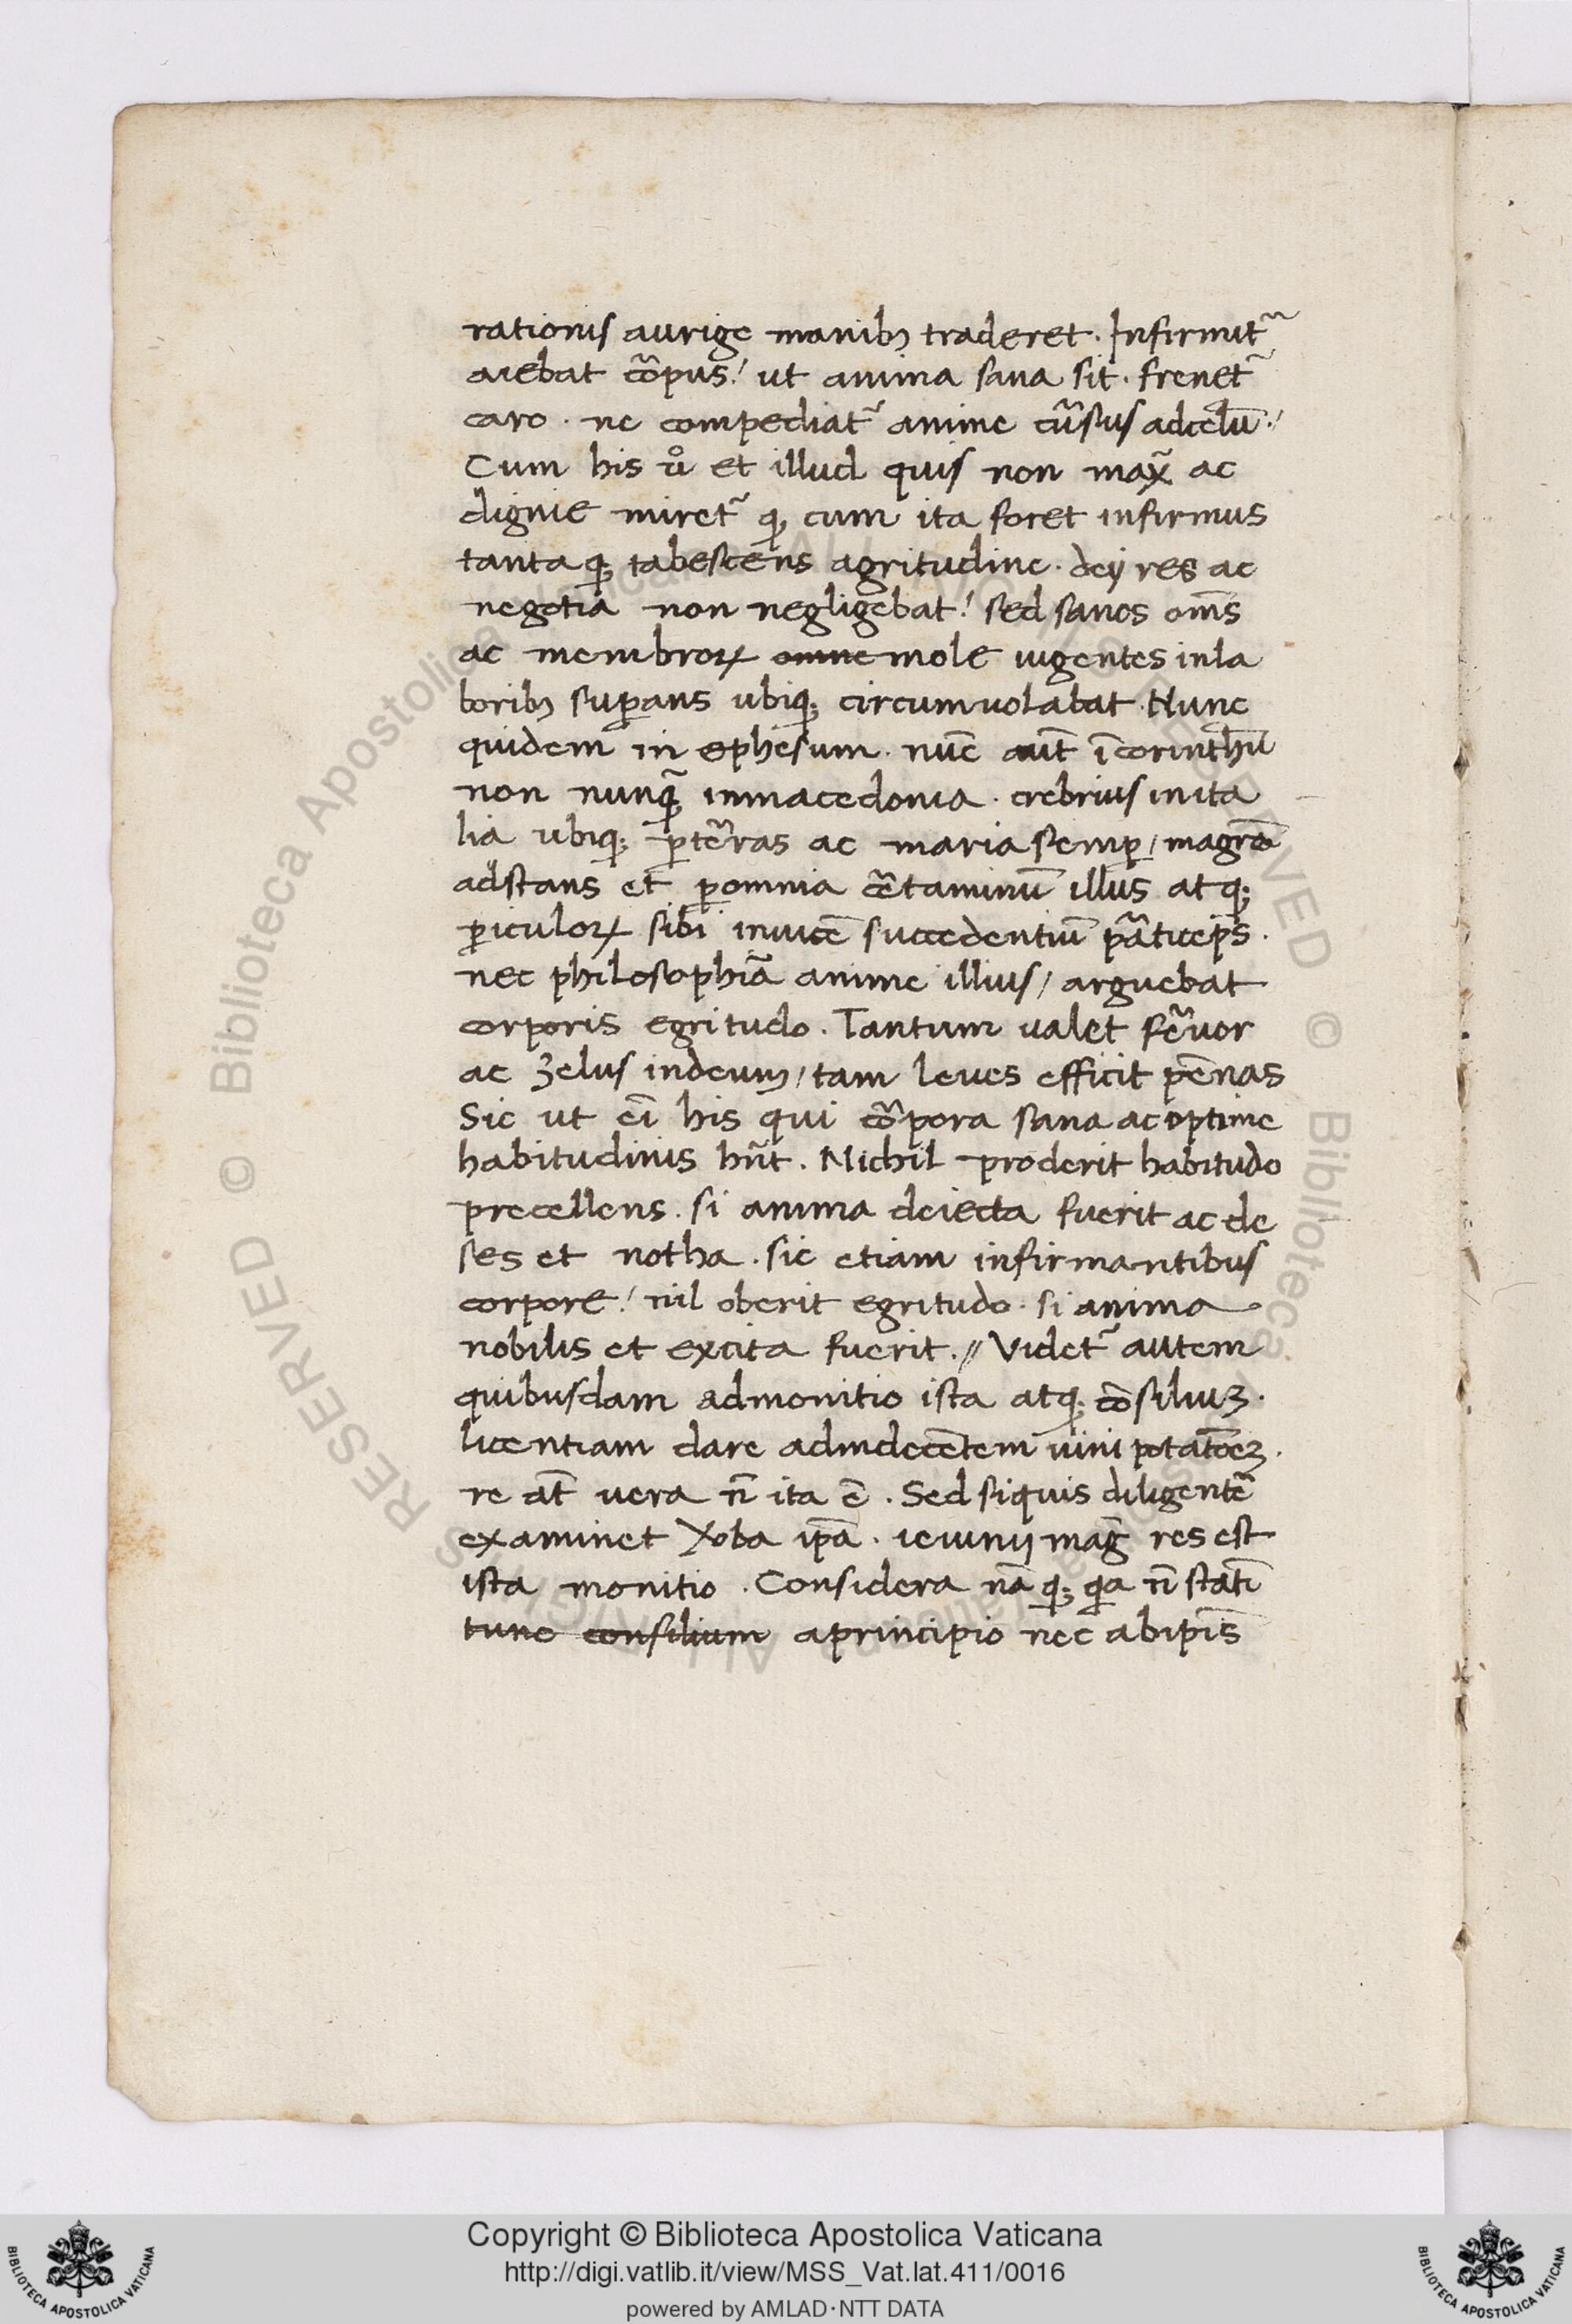 rationis aurige manibꝫ traderet. Infirmet᷑
aiebat co᷑pus! ut anima sana sit. frenet᷑
caro. ne compediat᷑ anime cu᷑sus adcelū!
Cum his ů et illud quis non max̄ ac
digne miret᷑ ꝙ cum ita foret infirmus
tantaqꝫ tabescens agritudine. deij res ac
negotia non negligebat! sed sanos om̄s
ac membroꝝ omne mole uigentes inla
boribꝫ suꝑans ubiqꝫ circumuolabat. Nunc
quidem in ephesum. nūc aut̄ ī corinthū
non nunqꝫ̄ inmacedonia. crebrius inita
lia ubiqꝫ ꝑte᷑ras ac maria semꝑ/ magnā
adstans et ꝑomnia ce᷑taminū illus atqꝫ
ꝑiculoꝝ sibi inuicē succedentiū pa᷑ticeps.
nec philosophiā anime illius/ arguebat
corporis egritudo. Tantum valet fe᷑uor
ac zelus indeum/ tam leues efficit pēnas
Sic ut eī his qui co᷑pora sana ac optime
habitudinis hn̄t. Nichil proderit habitudo
precellens. si anima deiecta fuerit ac de
ses et notha. sic etiam infirmantibus
corpore! nil oberit egritudo. si anima
nobilis et excita fuerit. // Videt᷑ autem
quibusdam admonitio ista atqꝫ cōsiliuꝫ.
licentiam dare adindecētem uini potatōeꝫ.
re at̄ uera n̄ ita ē. Sed siquis diligentē
examinet ipā. ieiunij maḡ res est
ista monitio. Considera nāqꝫ qa n̄ statī
tunc consilium aprincipio nec abipīs
Copyright © Biblioteca Apostolica Vaticana
http://digi.vatlib.it/view/MSS_Vat.lat.411/0016
powered by AMLAD·NTT DATA